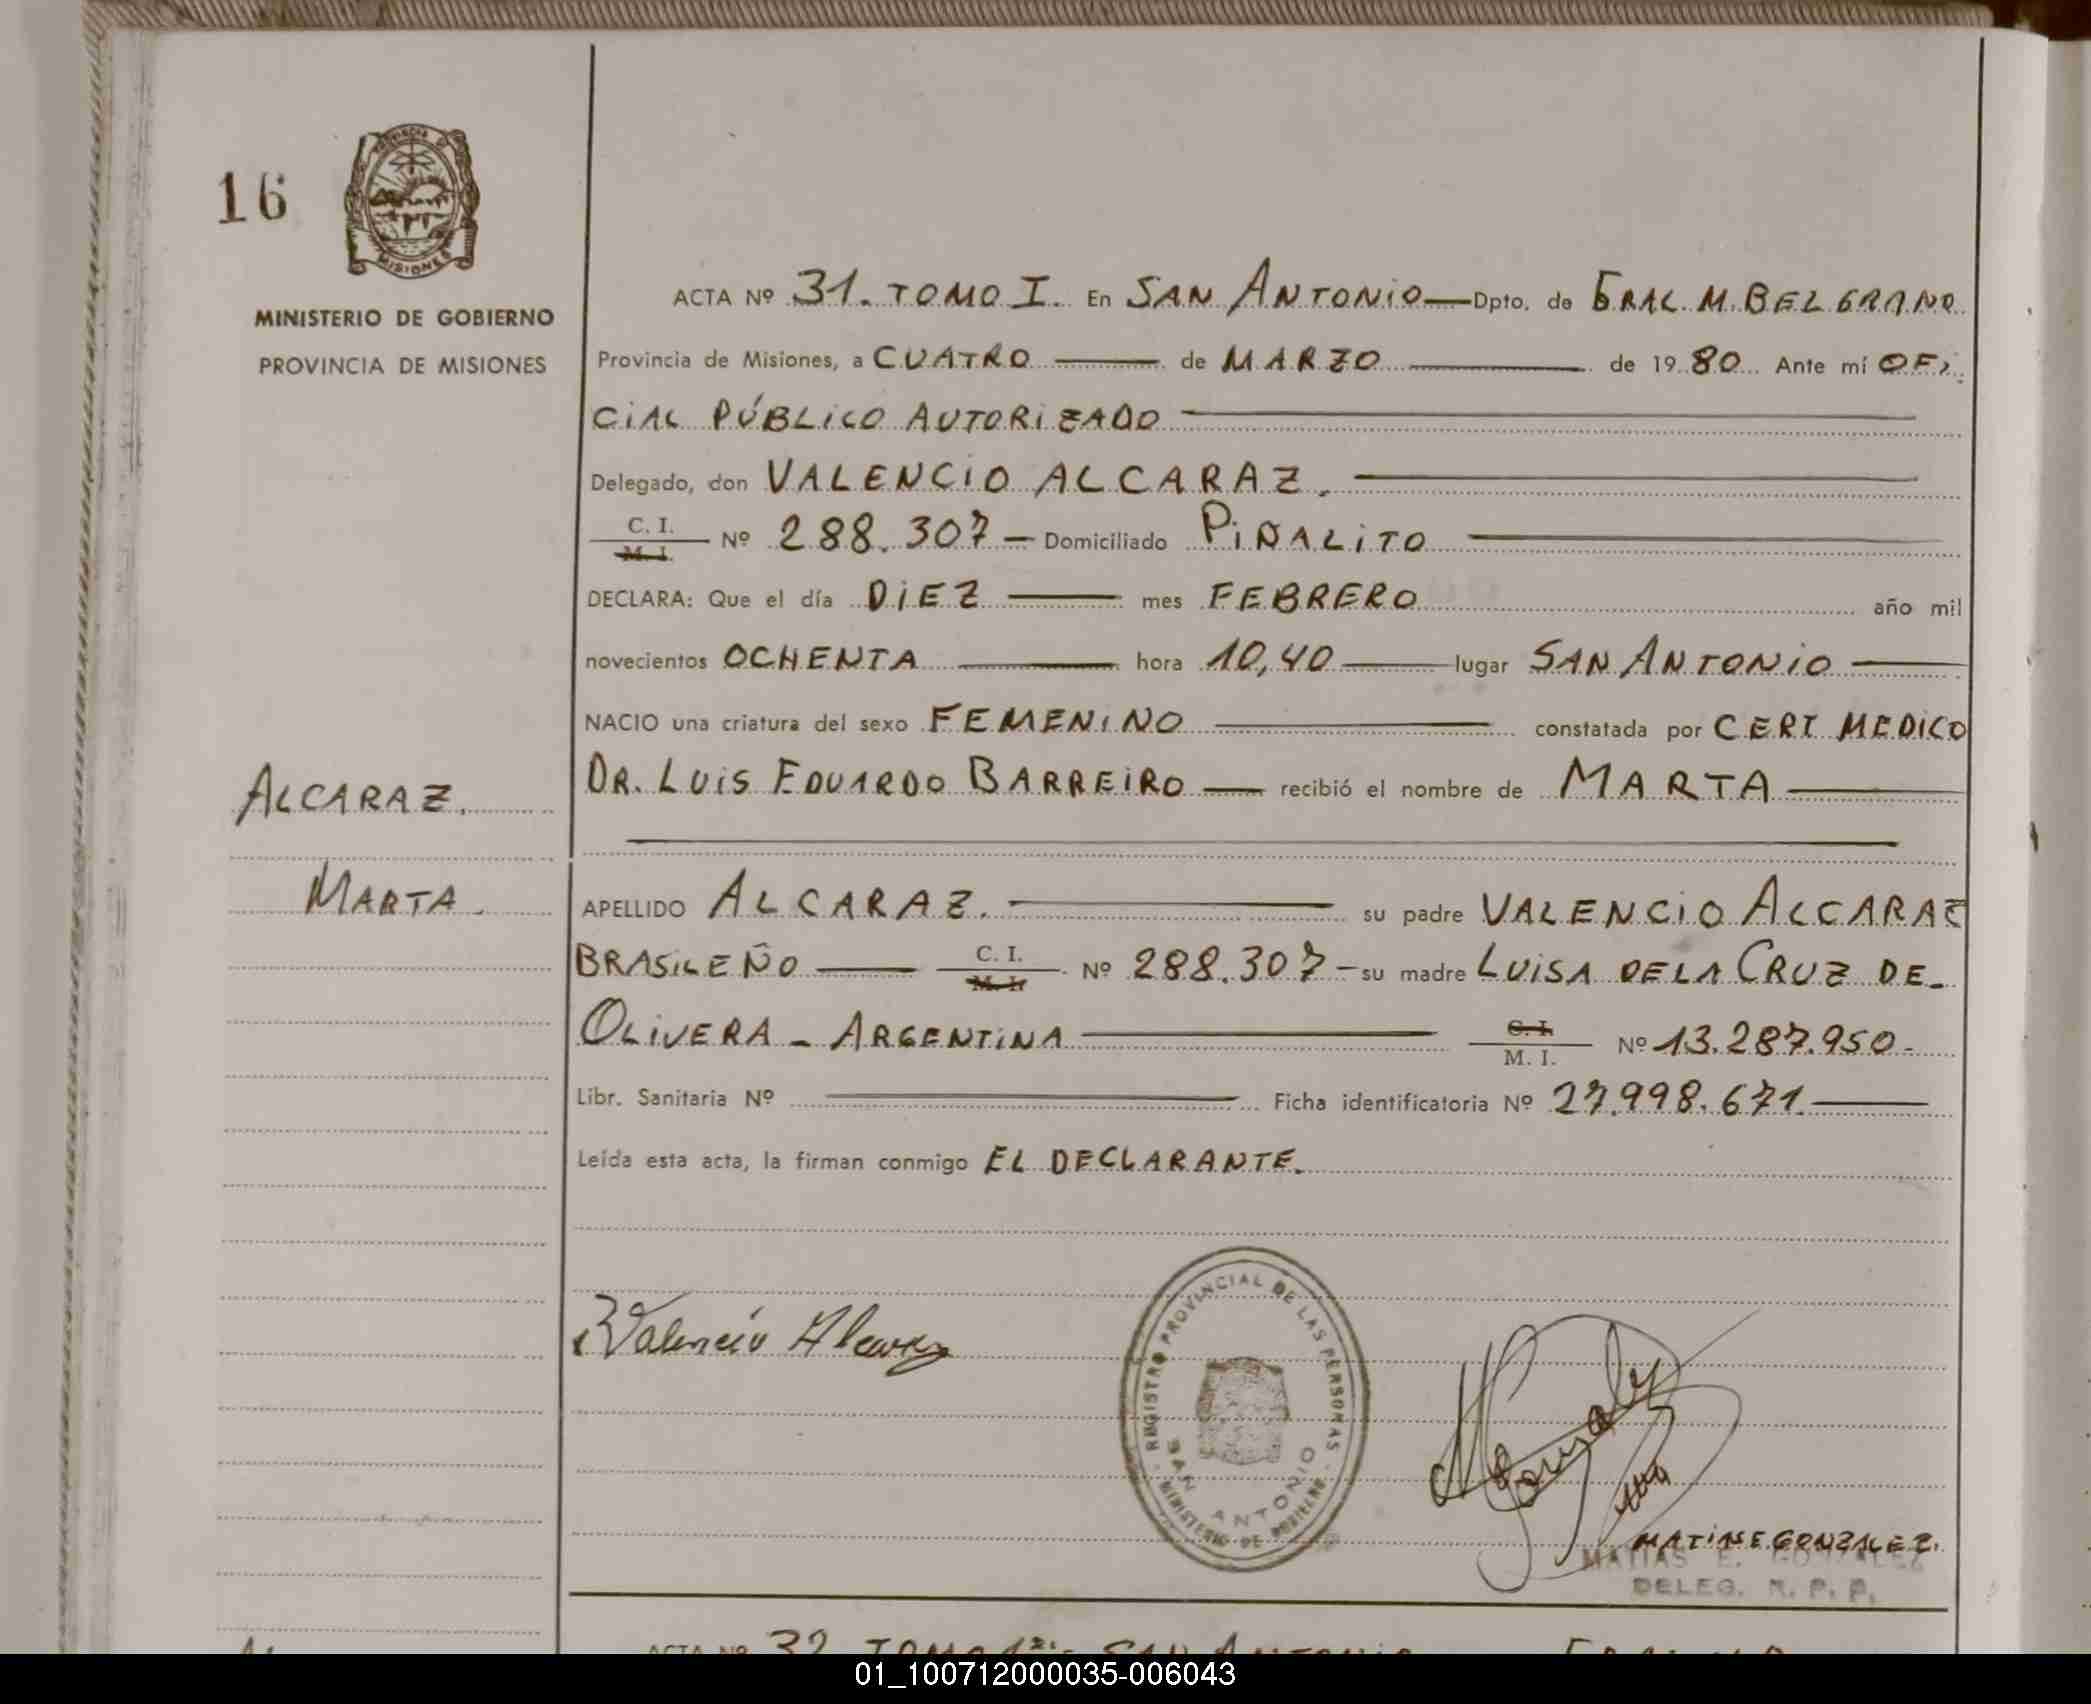 16
PROVINCIA DE
MISIONES
MINISTERIO DE GOBIERNO
PROVINCIA DE MISIONES
ACTA Nº 31. TOMO I. En SAN ANTONIO Dpto. de GRAL. M. BELGRANO
Provincia de Misiones, a CUATRO de MARZO de 1980 Ante mí OFI
CIAL PÚBLICO AUTORIZADO
Delegado, don VALENCIO ALCARAZ.
C. I.
M. I. Nº 288.307 - Domiciliado PIÑALITO
DECLARA: Que el día DIEZ mes FEBRERO año mil
novecientos OCHENTA hora 10,40 lugar SAN ANTONIO
NACIO una criatura del sexo FEMENINO constatada por CERT MEDICO
DR. LUIS EDUARDO BARREIRO recibió el nombre de MARTA
ALCARAZ.
MARTA.
APELLIDO ALCARAZ. su padre VALENCIO ALCARAZ
BRASILEÑO C. I. M. I. Nº 288.307 - su madre LUISA DE LA CRUZ DE-
OLIVERA - ARGENTINA C. I. M. I. Nº 13.287.950-
Libr. Sanitaria Nº Ficha identificatoria Nº 27.998.671.
Leída esta acta, la firman conmigo EL DECLARANTE.
Valencio Alcaraz
REGISTRO PROVINCIAL DE LAS PERSONAS
SAN ANTONIO
MINISTERIO DE GOBIERNO
MATIAS E. GONZALEZ.
MATIAS E. GONZALEZ
DELEG. R. P. P.
ACTA Nº 32 TOMO SAN ANTONIO
01_100712000035-006043